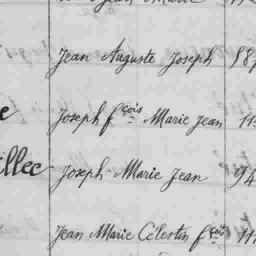 Jean Marie
Jean Auguste Joseph 88
Joseph fçois Marie Jean 11
illec Joseph Marie Jean 94
Jean Marie Célestin fçois 11